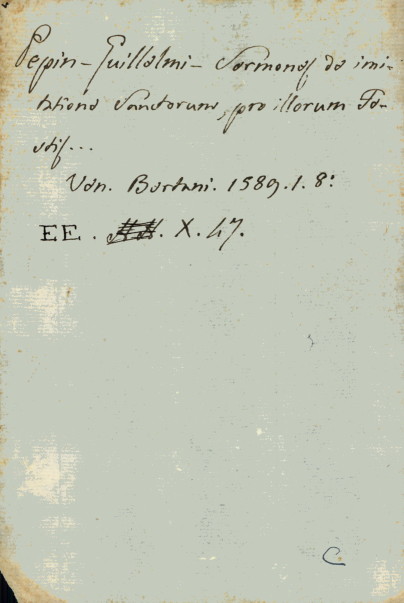 Pepin - Guillelmi - Sermones de imi-
tatione Sanctorum, pro illorum Fe-
stis...
Ven. Bertani. 1589. 1. 8:
EE. . X. 47.
C